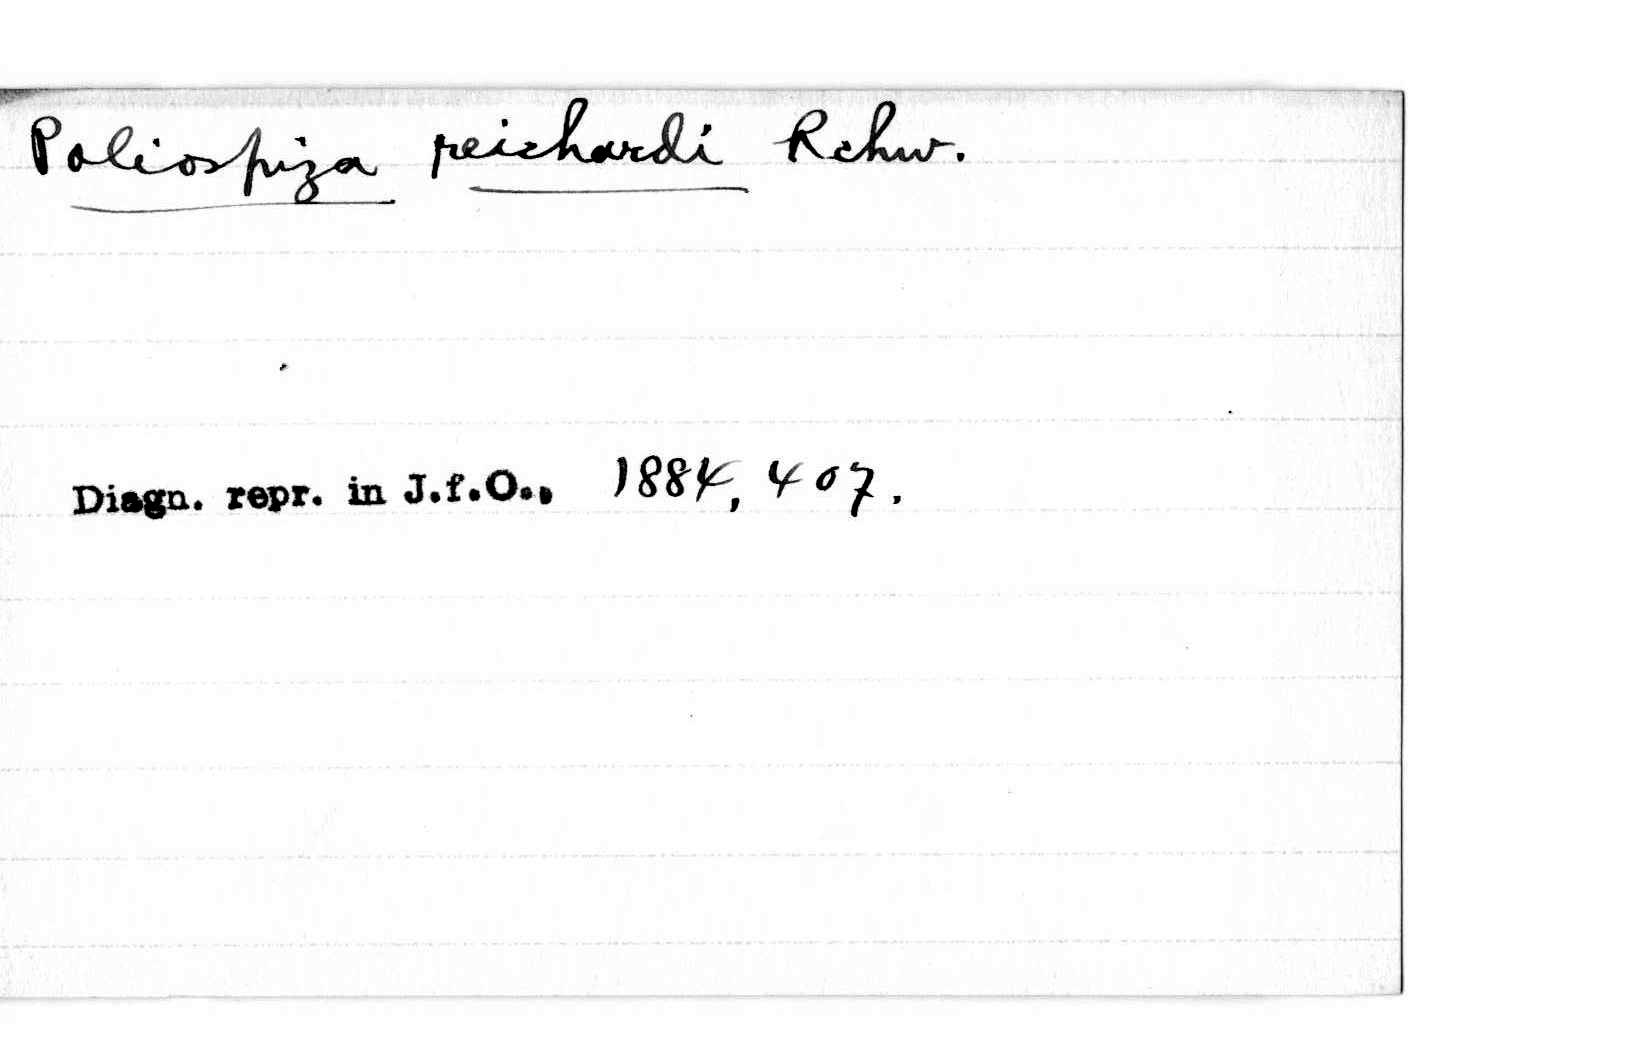 Poliospiza reichardi Rchw.
Diagn. repr. in J.f.O., 1884, 407.